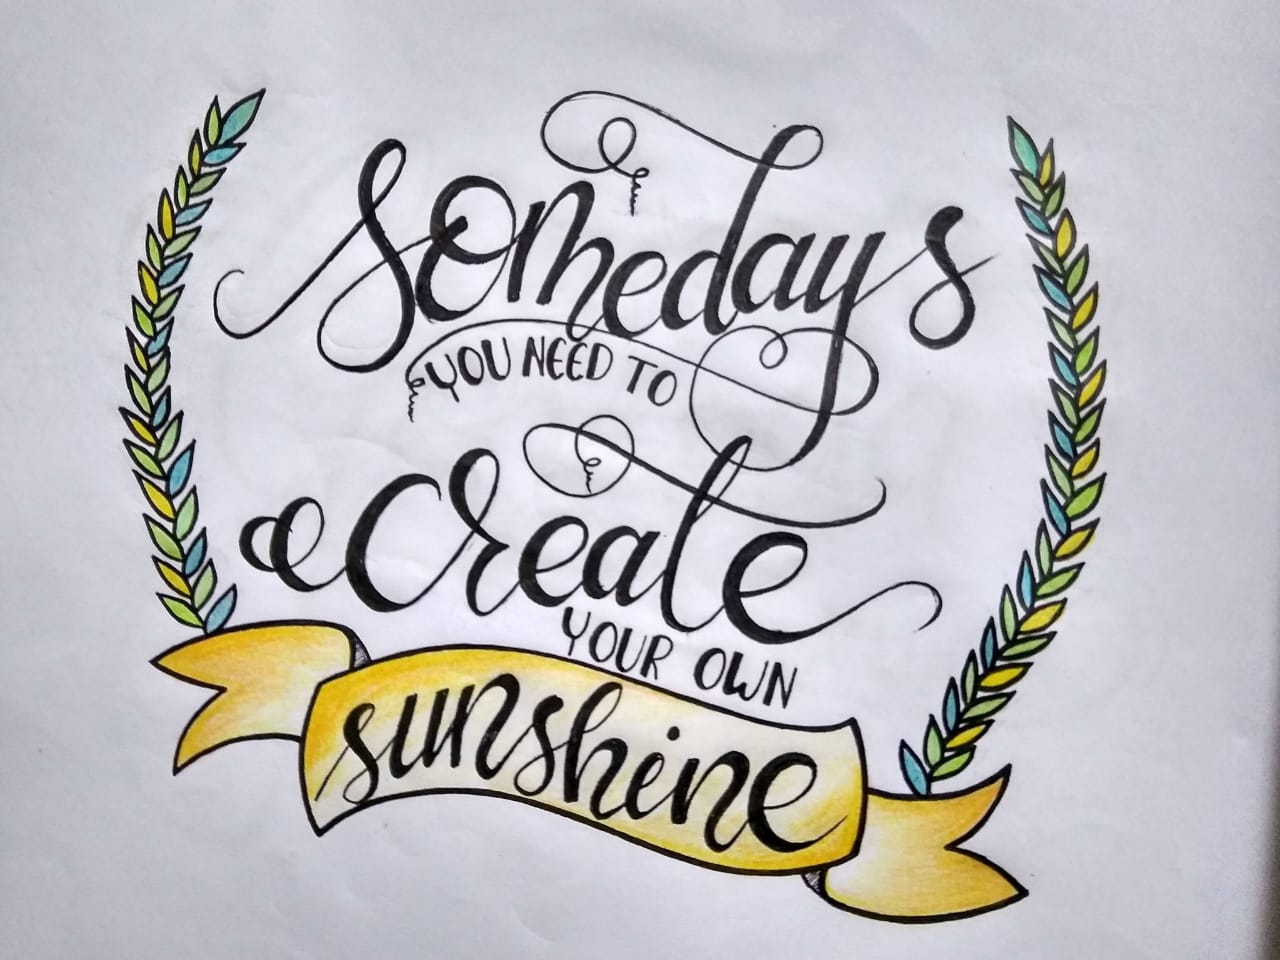 Somedays
YOU NEED TO
create
YOUR OWN
sunshine